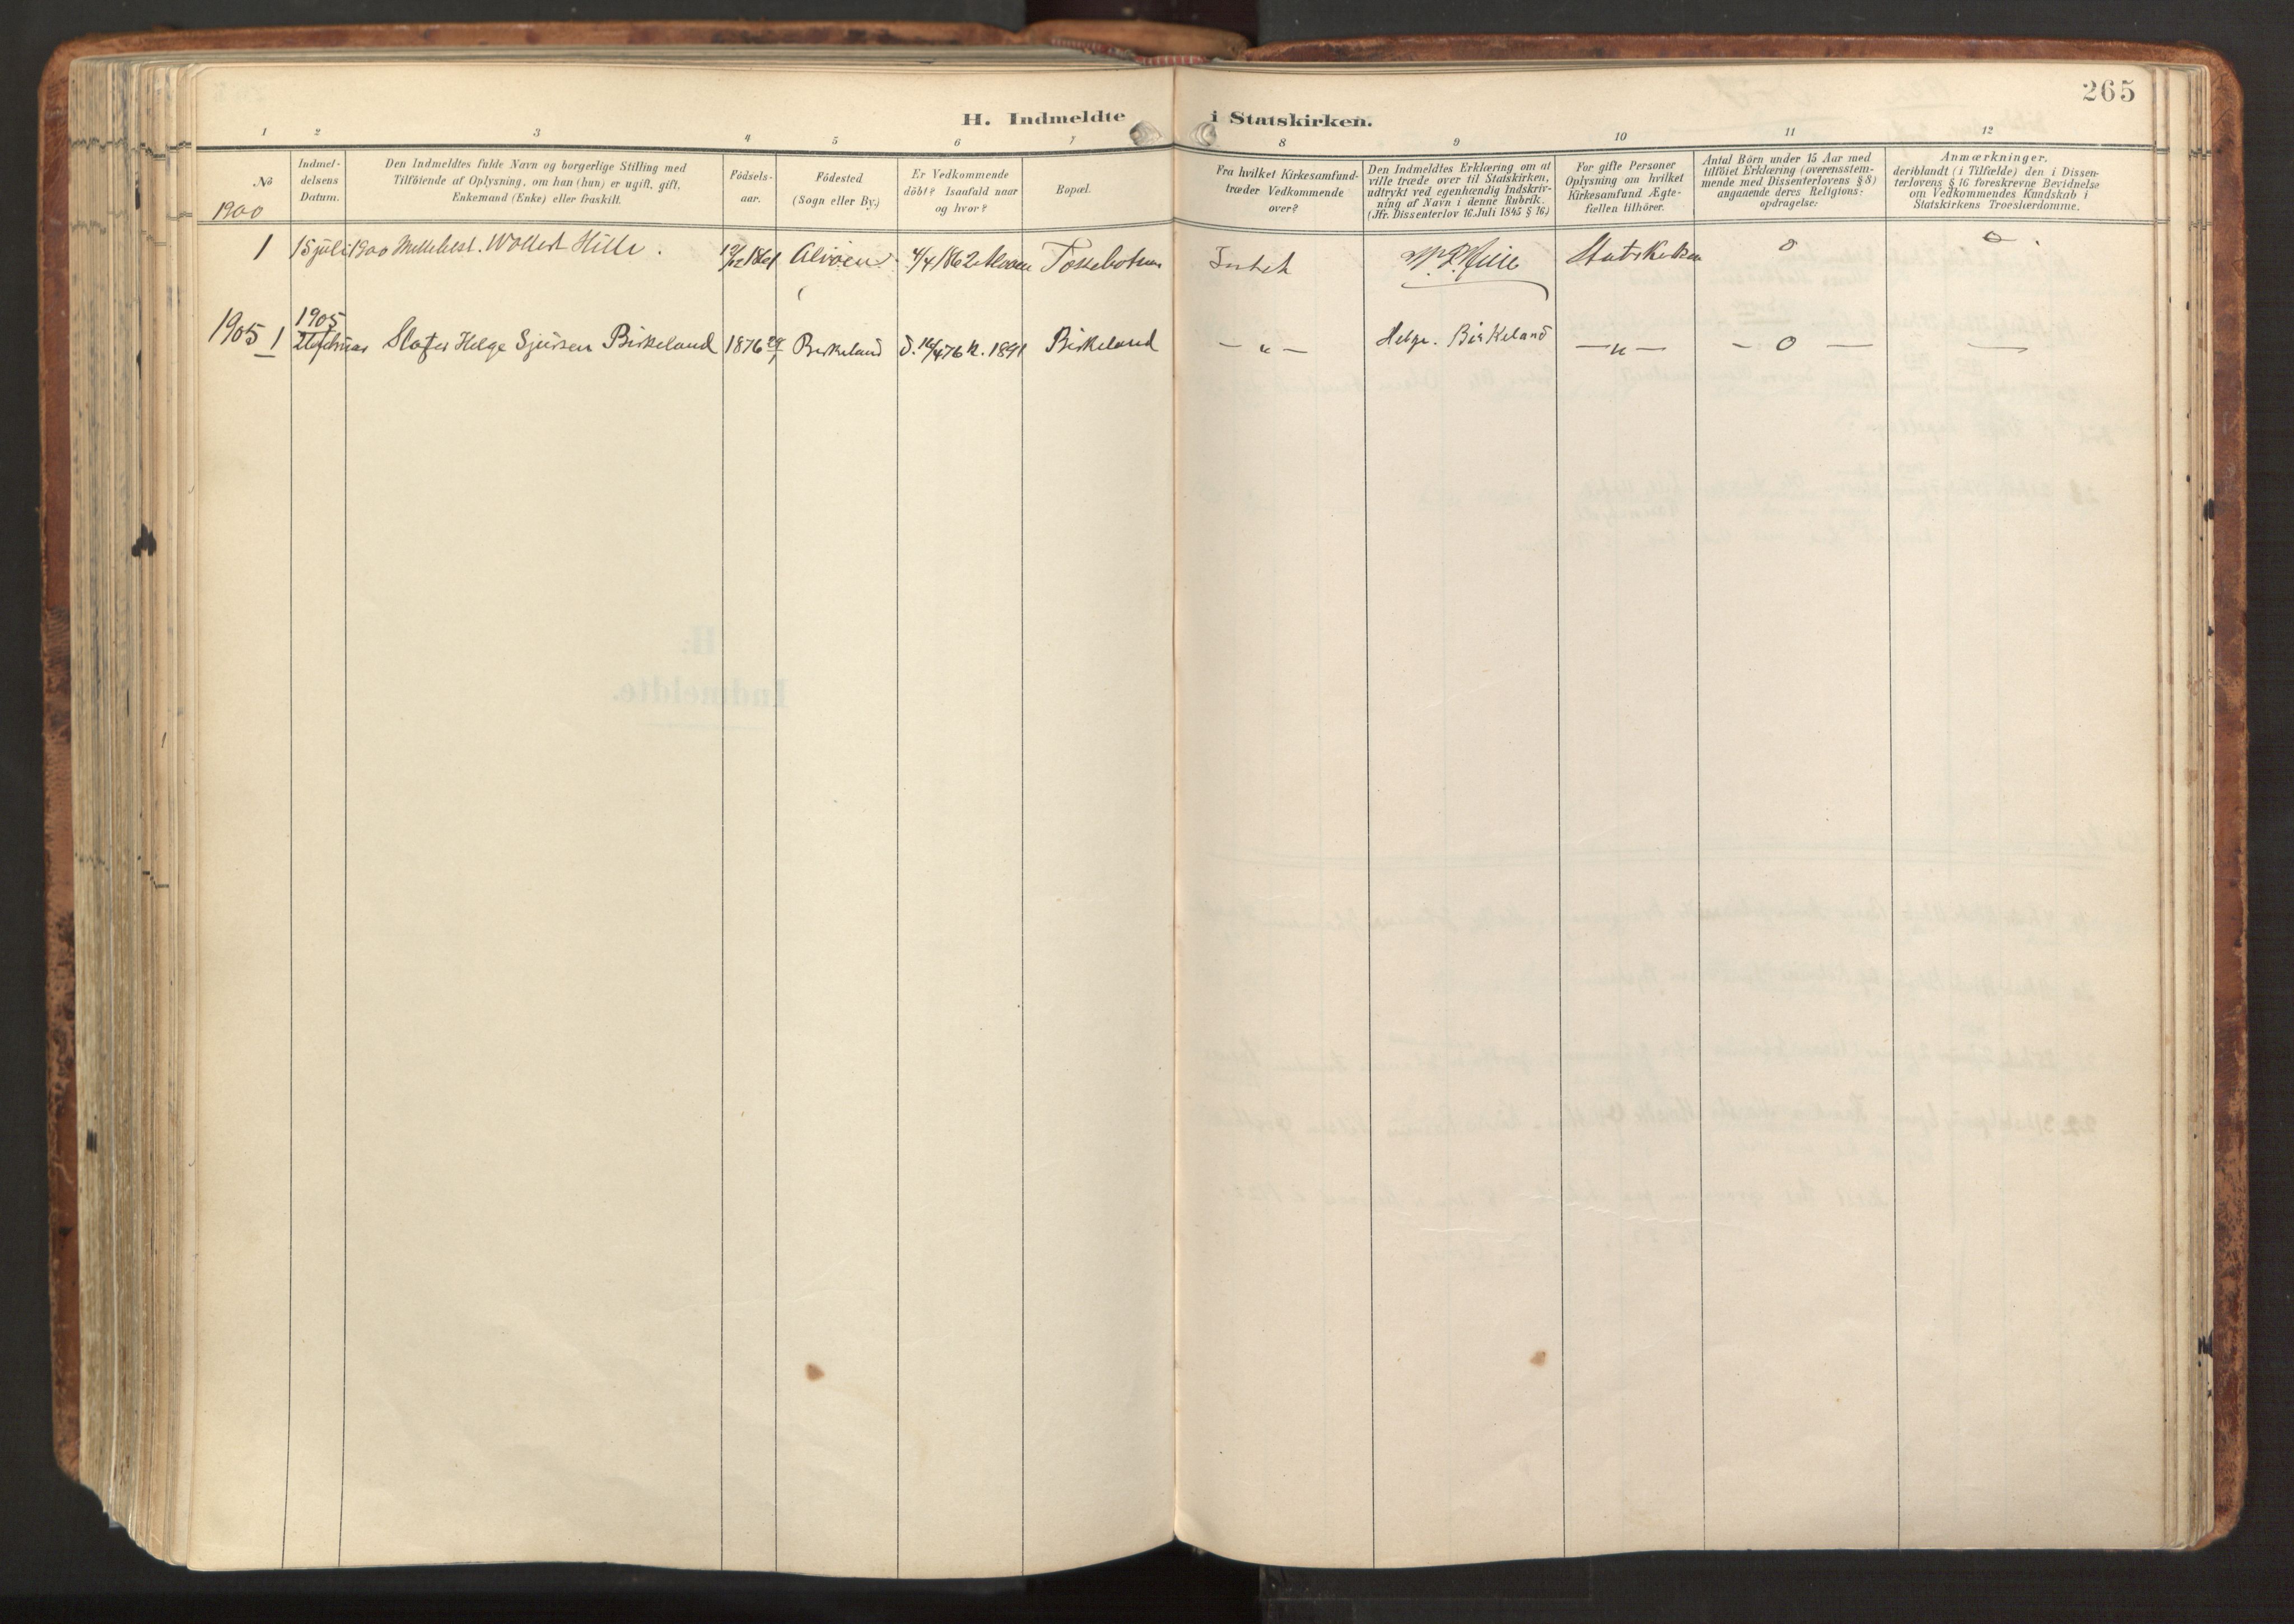 265
H. Indmeldte i Statskirken.
1 2 3 4 5 6 7 8 9 10 11 12
No
1900
Indmel-
delsens
Datum.
Den Indmeldtes fulde Navn og borgerlige Stilling med
Tilföiende af Oplysning, om han (hun) er ugift, gift,
Enkemand (Enke) eller fraskilt.
Födsels-
aar.
Födested
(Sogn eller By.)
Er Vedkommende
döbt? Isaafald naar
og hvor?
Bopæl.
Fra hvilket Kirkesamfund
træder Vedkommende
over?
Den Indmeldtes Erklæring om at
ville træde over til Statskirken,
udtrykt ved egenhændig Indskriv-
ning af Navn i denne Rubrik.
(Jfr. Dissenterlov 16. Juli 1845 § 16.)
For gifte Personer
Oplysning om hvilket
Kirkesamfund Ægte-
fællen tilhörer.
Antal Börn under 15 Aar med
tilföiet Erklæring (overensstem-
mende med Dissenterlovens § 8)
angaaende deres Religions-
opdragelse:
Anmærkninger.
deriblandt (i Tilfælde) den i Dissen-
terlovens § 16 foreskrevne Bevidnelse
om Vedkommendes Kundskab i
Statskirkens Troesherdomme.
1 15 juli 1900 Wollert Hille. 12/12 1861 Alvöen 4/4 1862 Alvöen Statskirken 0 0
1905 1 1905 Helge Sjursen Birkeland 1876 Birkeland d. 16/4 76 k. 1891 Birkeland — " — Helge. Birkeland — " — — 0 — —